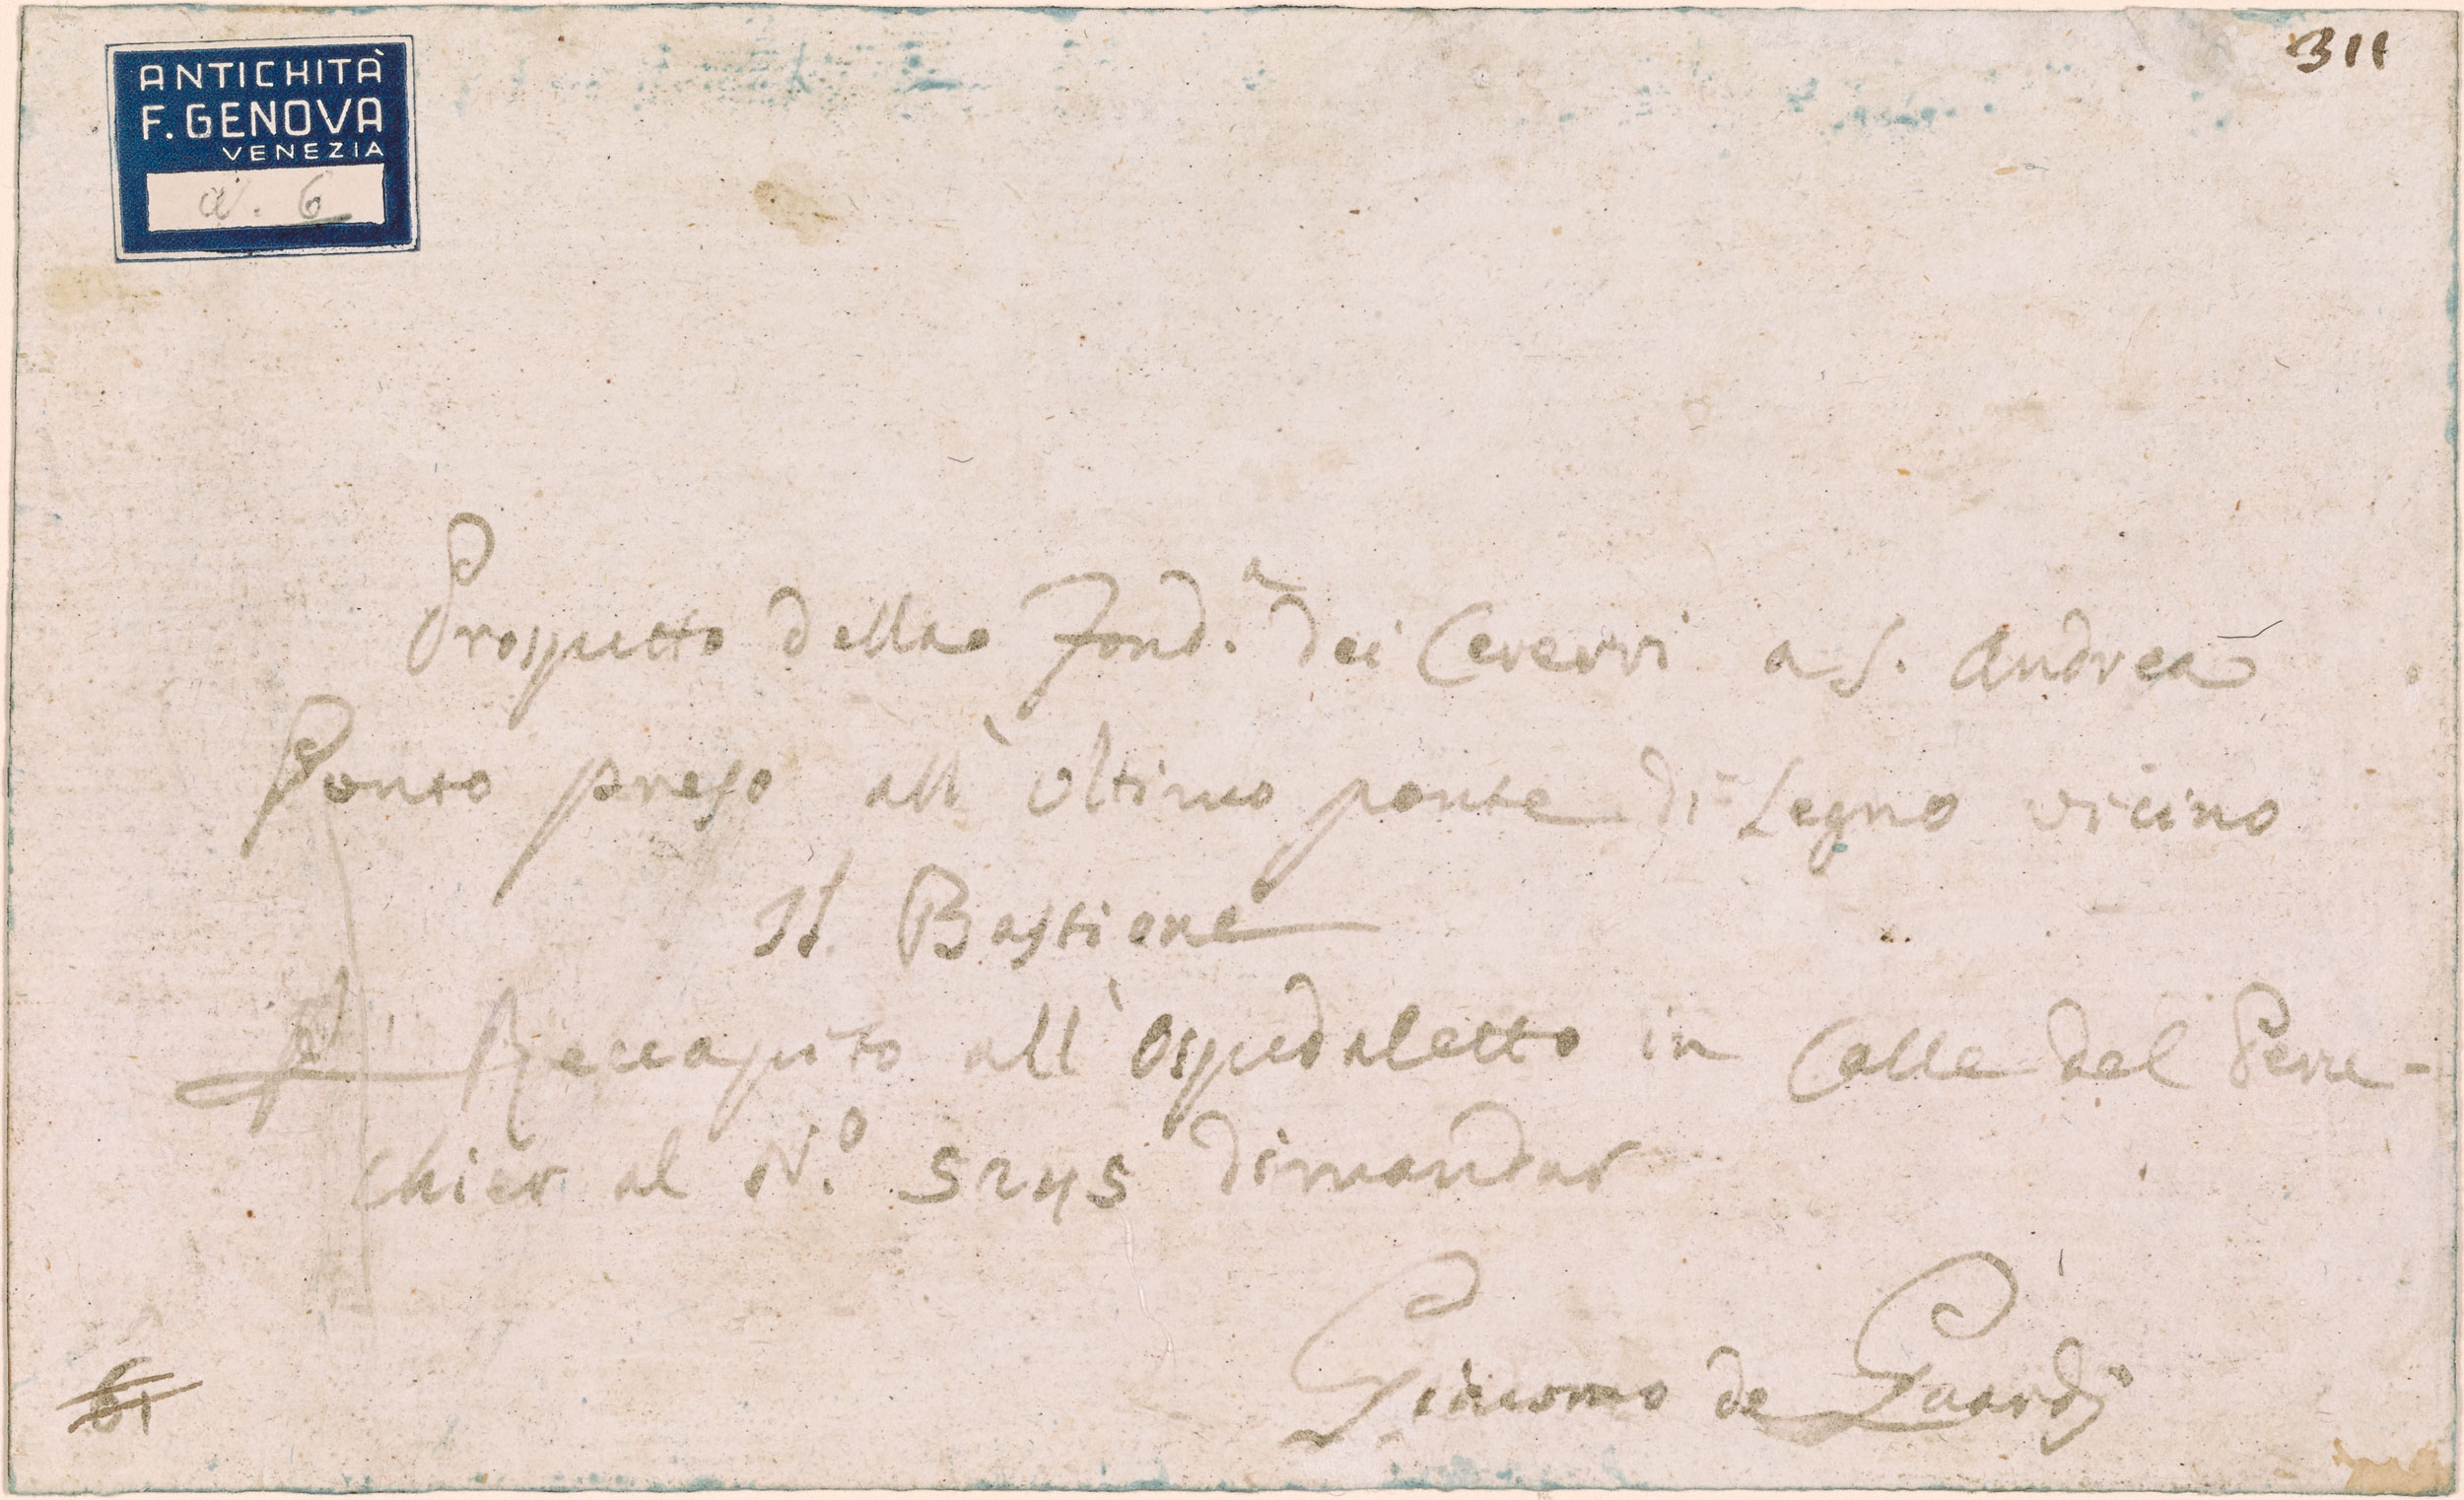 ANTICHITÀ
F. GENOVA
VENEZIA
a. 6
311
Prospetto della Fond.a dei Cerervi a S. Andrea
Ponto preso all' ultimo ponte di Legno vicino
Il Bastione
Reccapito all' Ospedaletto in Calle del Perre-
chier al N.o 5245 dimandar
Giacomo de Guardi
61